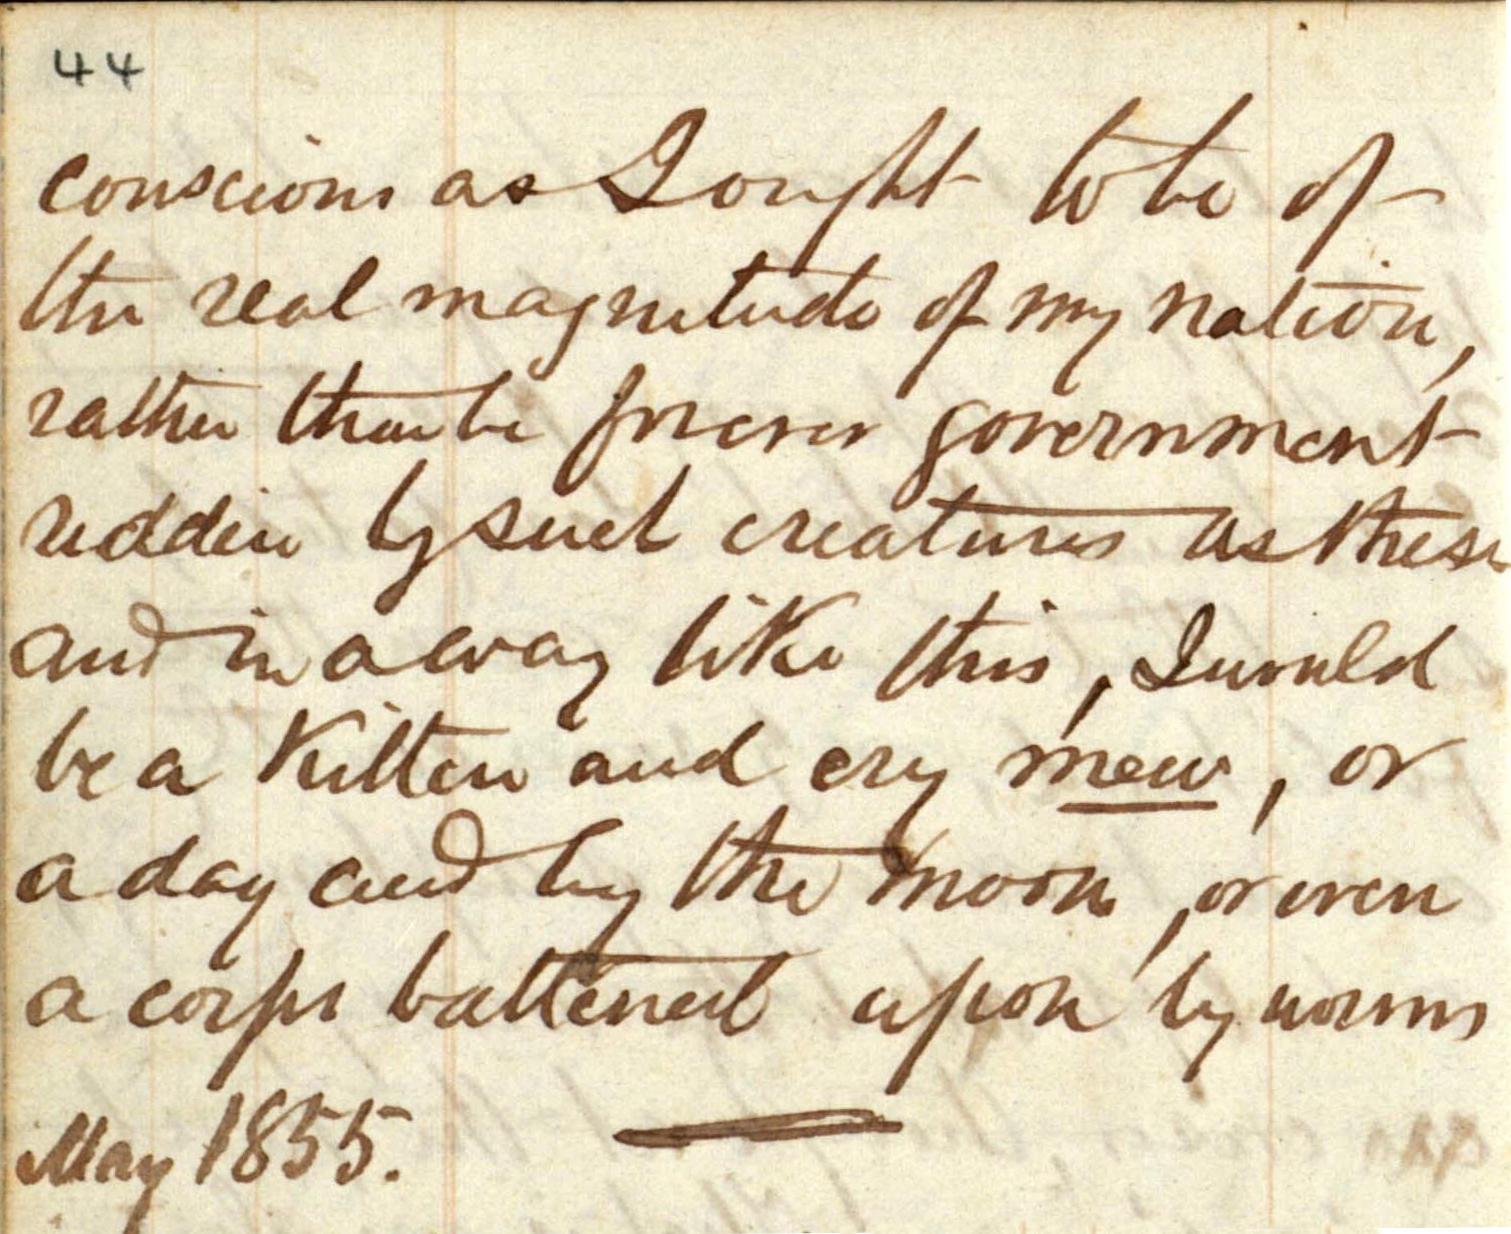 44
conscious as I ought to be of
the real magnitude of my nation,
rather than be forever government
ridden by such creatures as these
and in a way like this, I would
be a Kitten and cry mew, or
a day and by the moon, or even
a corps battened upon by worms
May 1855.